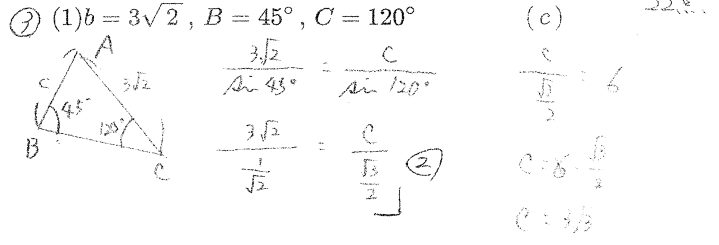 ③ (1) b = 3√2 , B = 45° , C = 120° (c)
A
c 3√2
45° 120°
B C
3√2 / sin 45° = c / sin 120°
3√2 / (1/√2) = c / (√3/2) ②
c / (√3/2) = 6
c = 6 · √3/2
c = 3√3